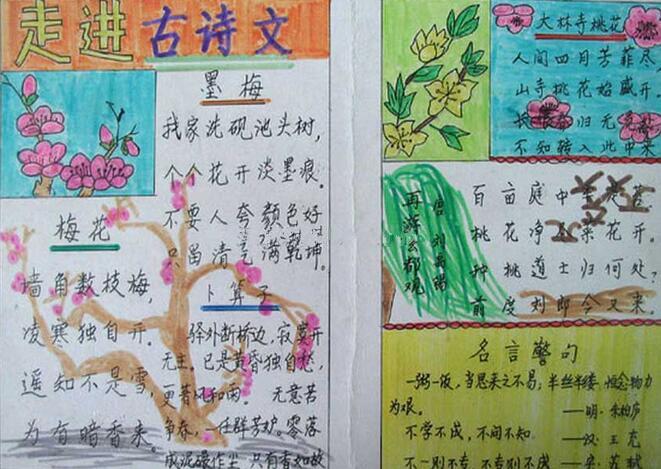 走进古诗文
墨梅
我家洗砚池头树，
个个花开淡墨痕。
不要人夸颜色好
只留清气满乾坤。
梅花
墙角数枝梅，
凌寒独自开。
遥知不是雪，
为有暗香来。
卜算子
驿外断桥边，寂寞开
无主。已是黄昏独自愁，
更著风和雨。 无意苦
争春，一任群芳妒。零落
成泥碾作尘 只有香如故
大林寺桃花
人间四月芳菲尽，
山寺桃花始盛开。
长恨春归无觅处
不知转入此中来
再游玄都观
唐 刘禹锡
百亩庭中半是苔
桃花净尽菜花开。
种桃道士归何处，
前度刘郎今又来。
名言警句
一粥一饭，当思来之不易；半丝半缕，恒念物力
为艰。
——明·朱柏庐
不学不成，不问不知
——汉 王充
一则不专 不专则不成
苏轼